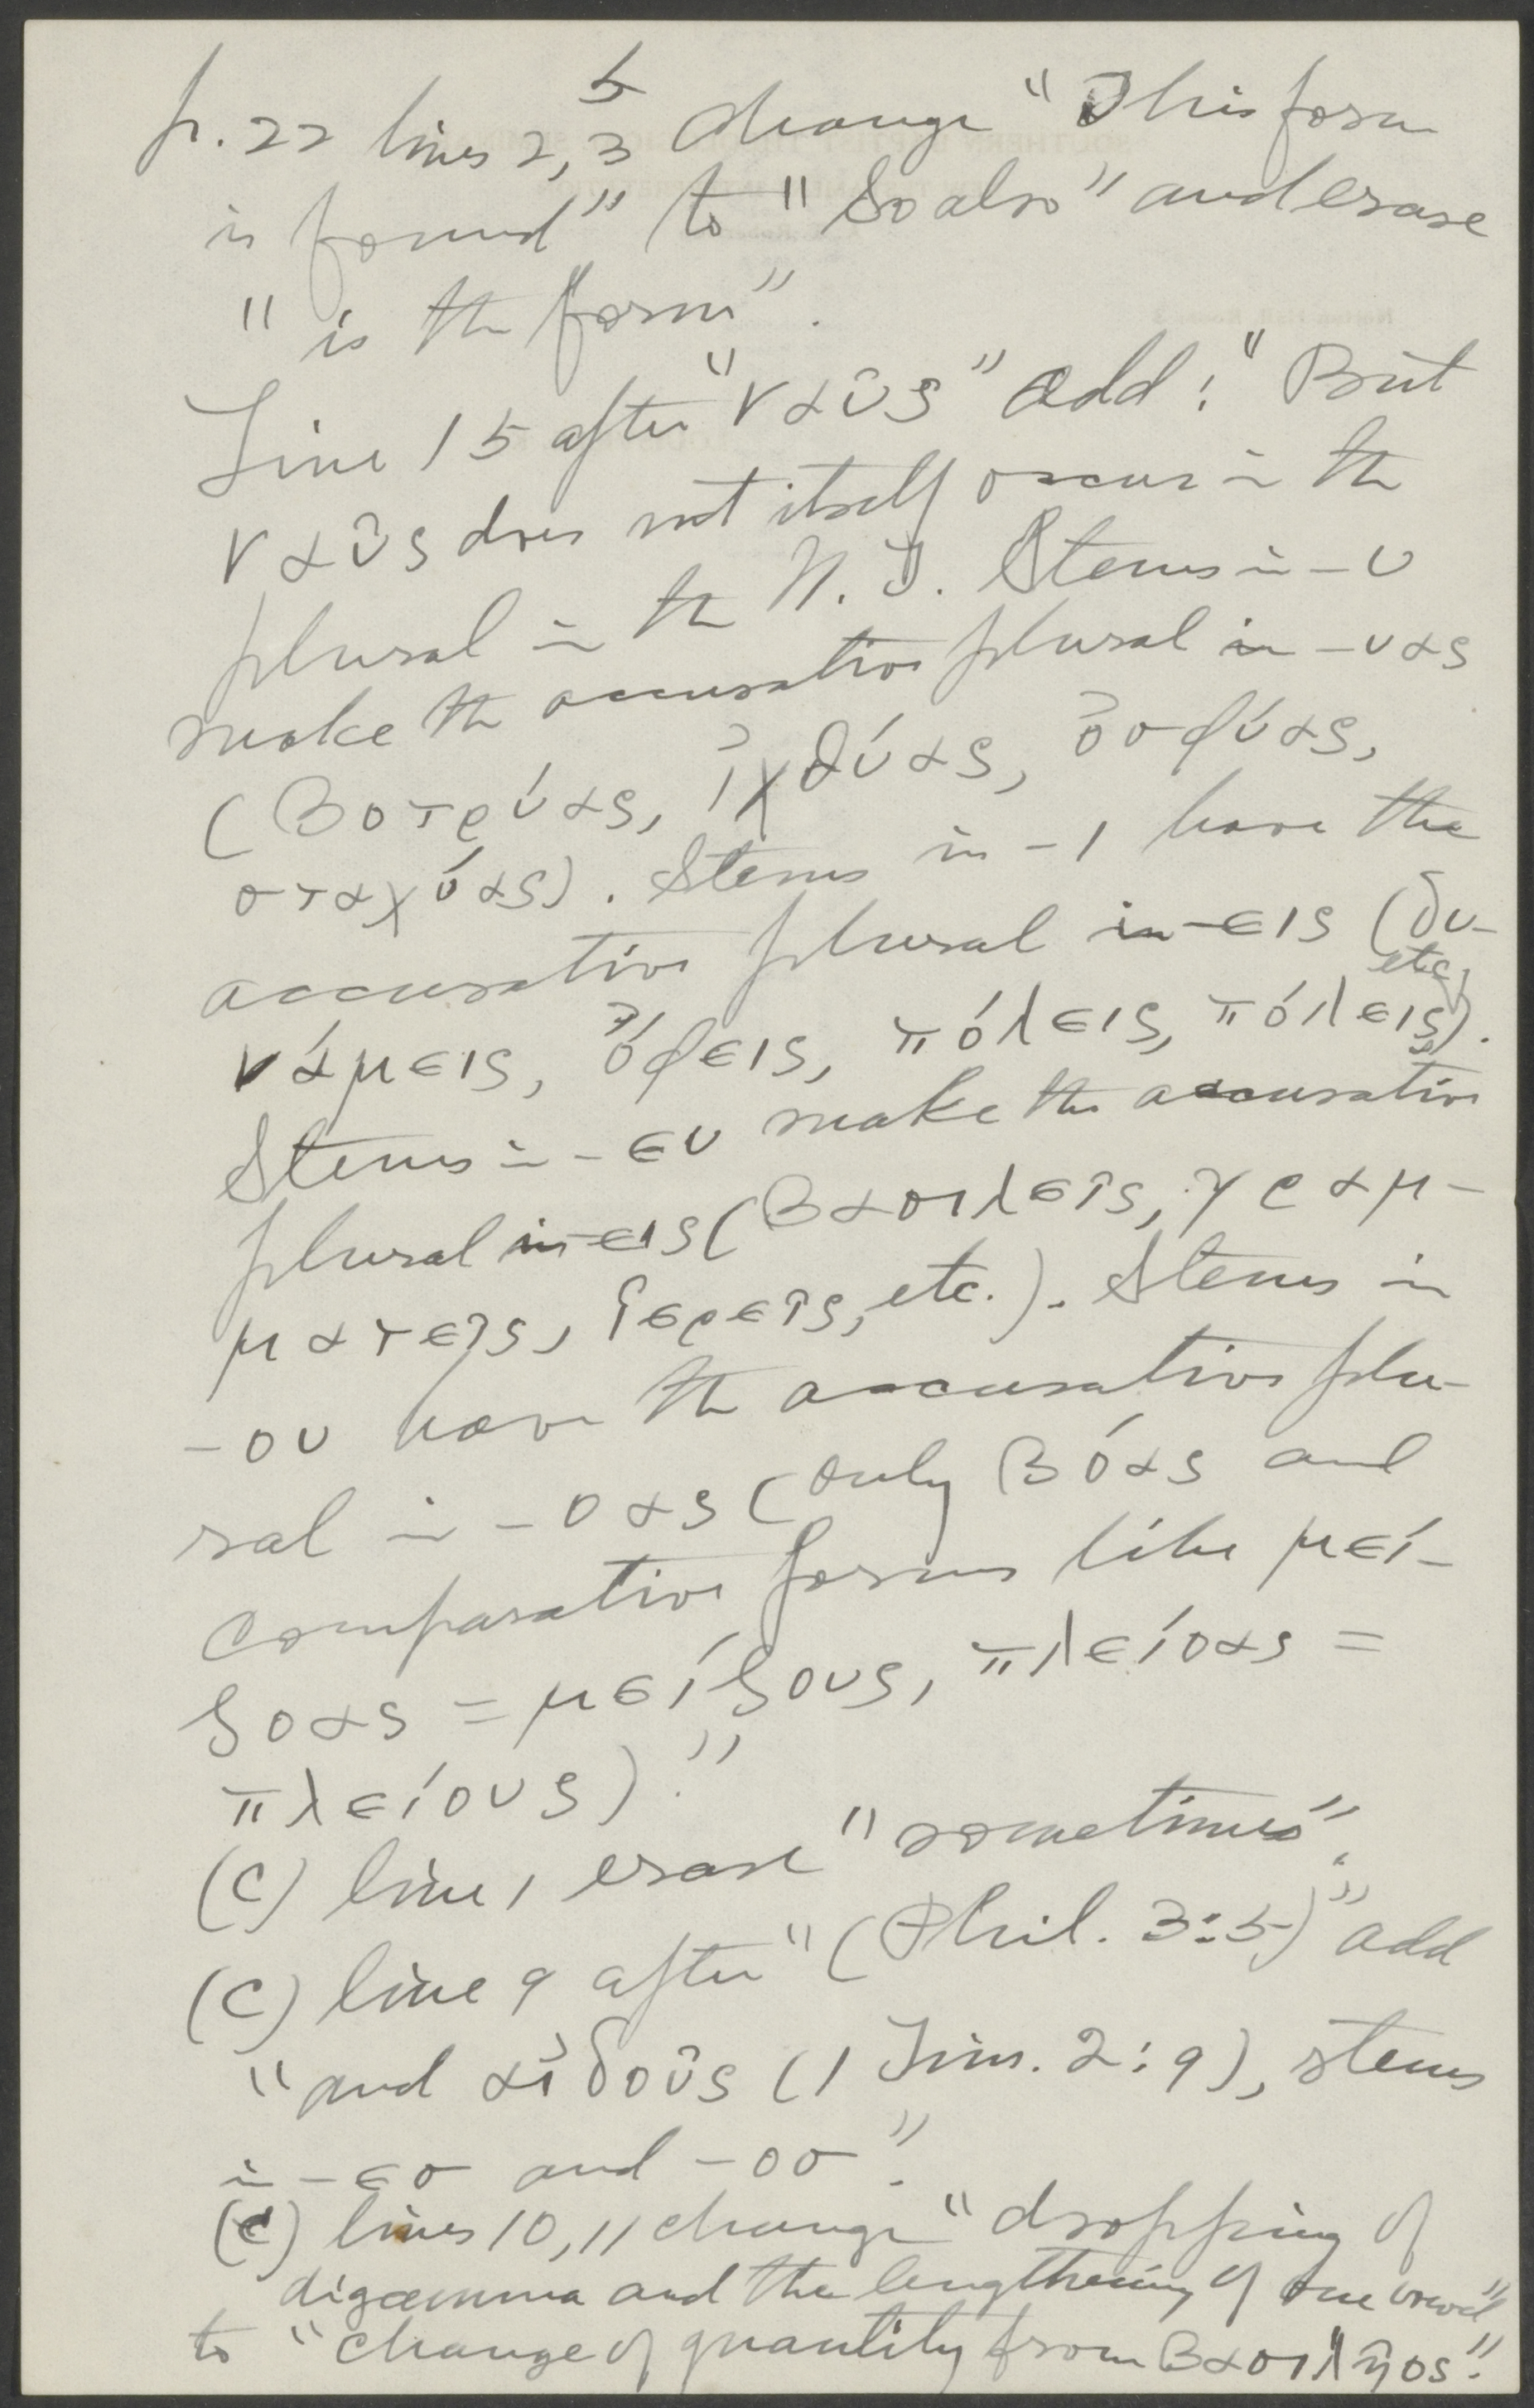 5
p. 22 lines 2, 3 change "This form
is found" to "So also" and erase
"is the form".
Line 15 after "ναῦς" add: "But
ναῦς does not itself occur in the
plural in the N. T. Stems in -υ
make the accusative plural in -υας
(βοτρύας, ἰχθύας, ὀσφύας,
σταχύας). Stems in -ι have the
accusative plural in -εις (δυ-
etc.
νάμεις, ὄφεις, πόλεις, πόλεις).
Stems in -ευ make the accusative
plural in -εις (βασιλεῖς, γραμ-
ματεῖς, ἱερεῖς, etc.). Stems in
-ου have the accusative plu-
ral in -οας (only βόας and
comparative forms like μεί-
ζοας = μείζους, πλείοας =
πλείους)."
(c) line 1 erase "sometimes".
(c) line 9 after "(Phil. 3:5)" add
"and αἰδοῦς (1 Tim. 2:9), stems
in -εσ and -οσ".
(c) lines 10, 11 change "dropping of
digamma and the lengthening of one vowel"
to "change of quantity from βασιλῆος."